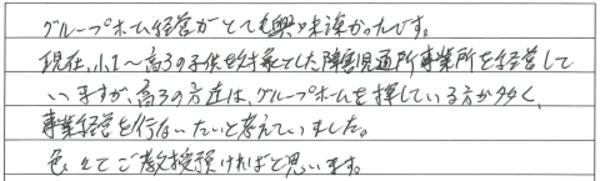 グループホーム経営がとても興味深かったです。
現在、小1～高3の子供を対象とした障害児通所事業所を経営して
いますが、高3の方達は、グループホームを探している方が多く、
事業経営を行ないたいと考えていました。
色々てご教授預ければと思います。